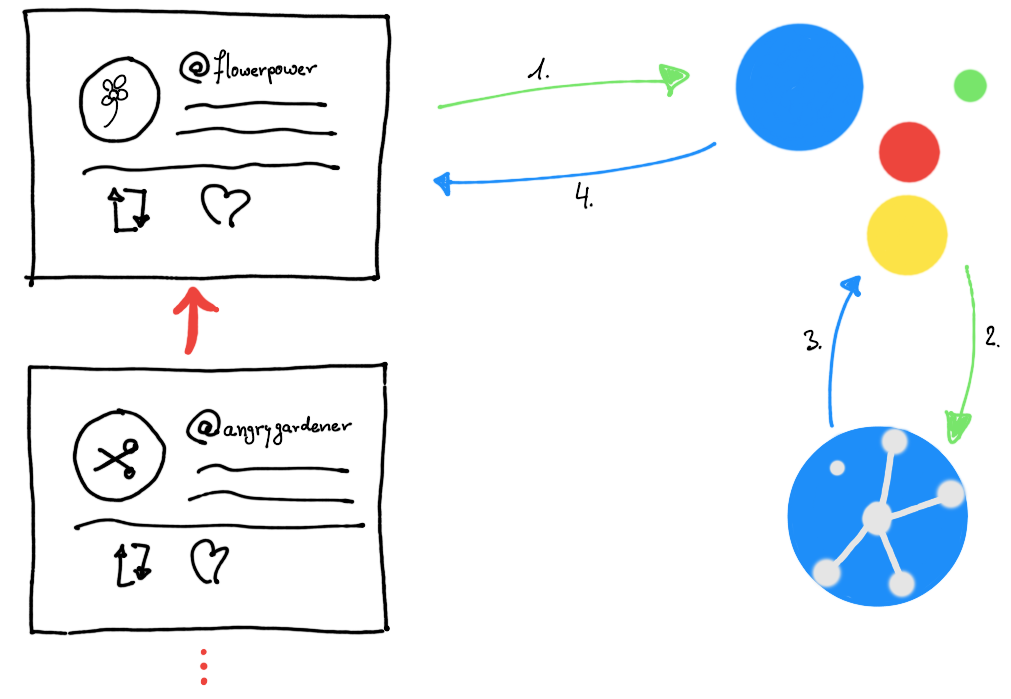 @flowerpower
1.
4.
3.
2.
@angrygardener